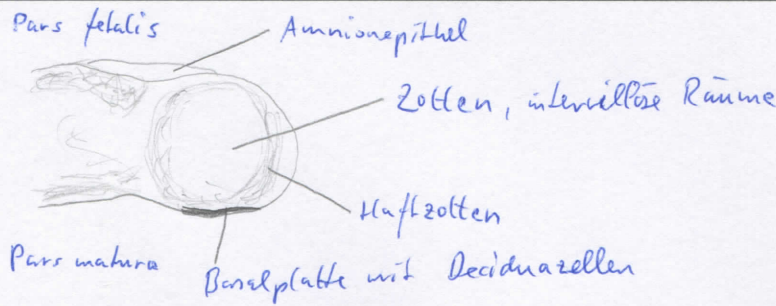 Pars fetalis
Amnionepithel
Zotten, intervillöse Räume
Haftzotten
Pars matura
Basalplatte mit Deciduazellen